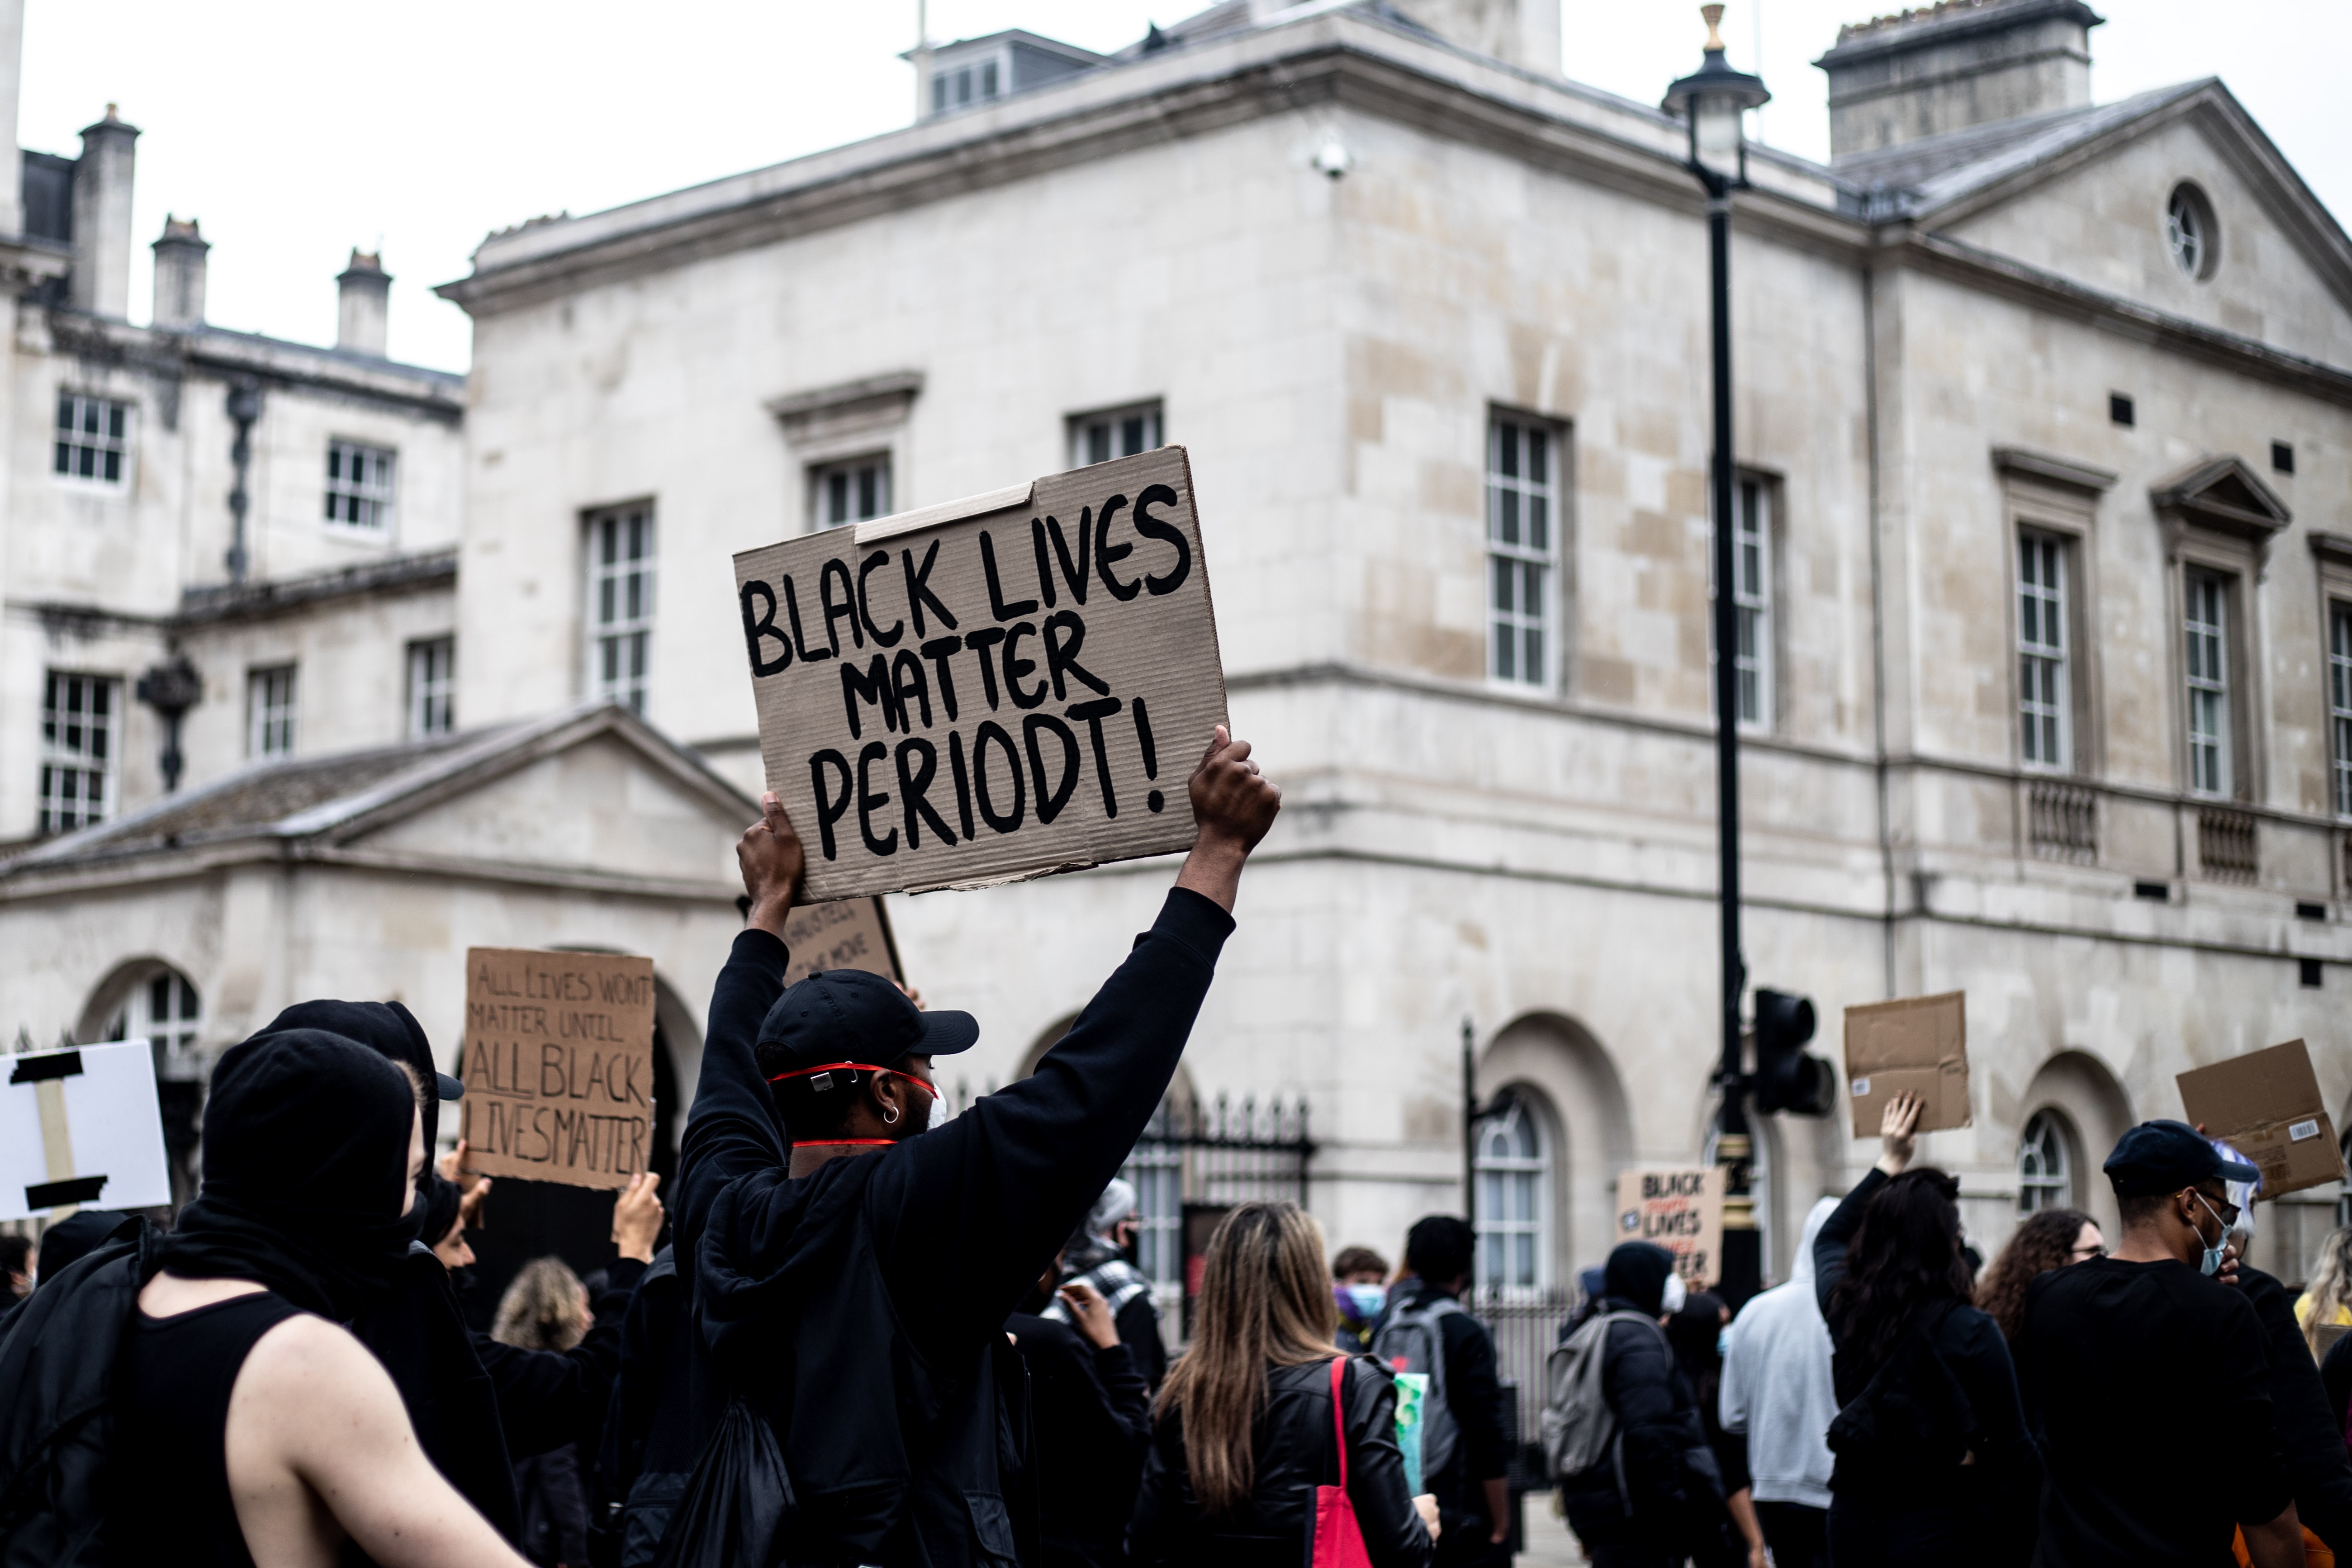 BLACK LIVES
MATTER
PERIODT!
MOVE
ALL LIVES WONT
MATTER UNTIL
ALL BLACK
LIVES MATTER
BLACK
LIVES